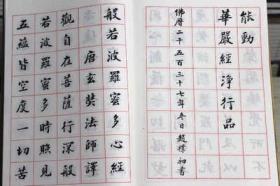 能動
華嚴經淨行品
佛曆二千五百三十七年冬日趙樸初書
般若波羅蜜多心經
唐玄奘法師譯
觀自在菩薩行深般
若波羅蜜多時照見
五蘊皆空度一切苦